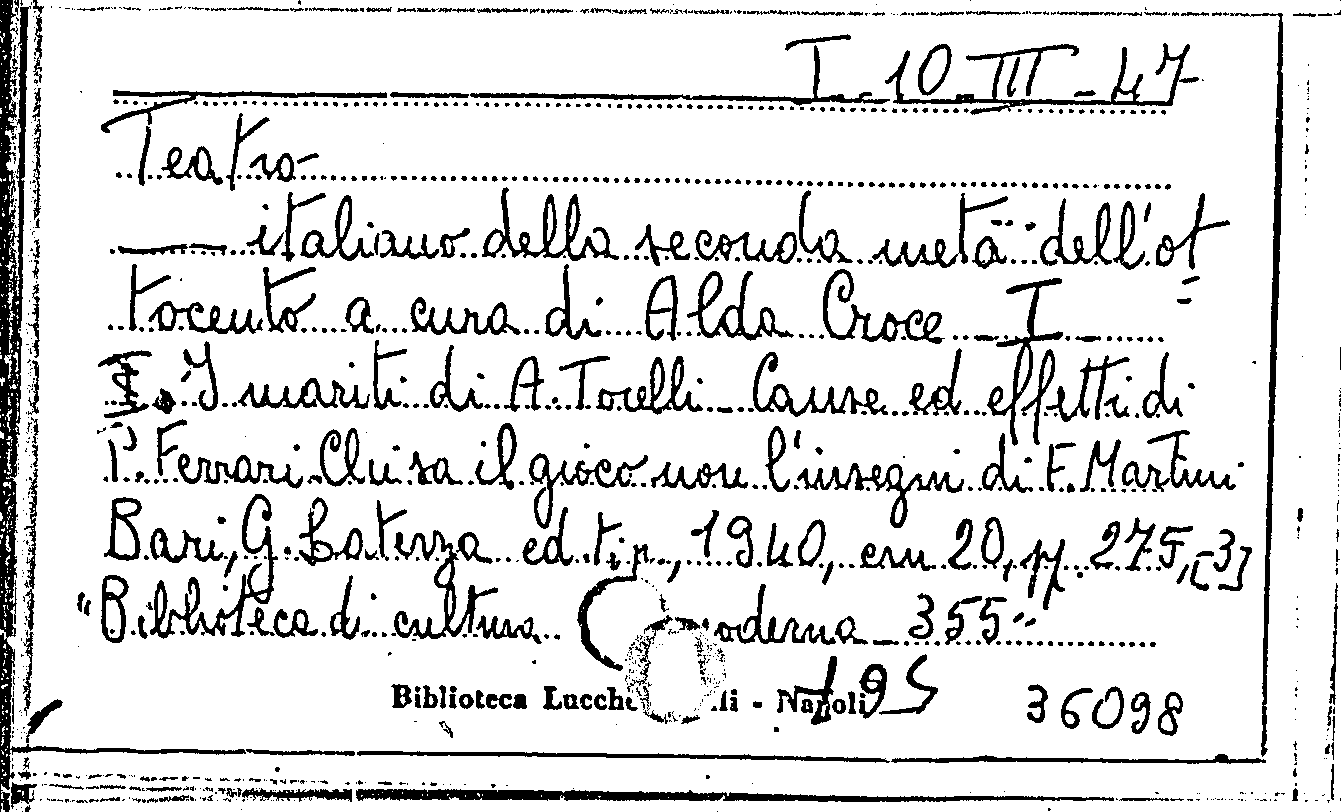 I-10-III-47
Teatro
— italiano della seconda metà dell'ot
tocento a cura di Alda Croce - I -
I mariti di A. Torelli - Cause ed effetti di
P. Ferrari - Chi sa il gioco non l'insegni di F. Martini
Bari, G. Laterza ed. tip., 1940, cm 20, pp. 275, [3]
"Biblioteca di cultura moderna - 355"
Biblioteca Lucche li - Napoli
36098